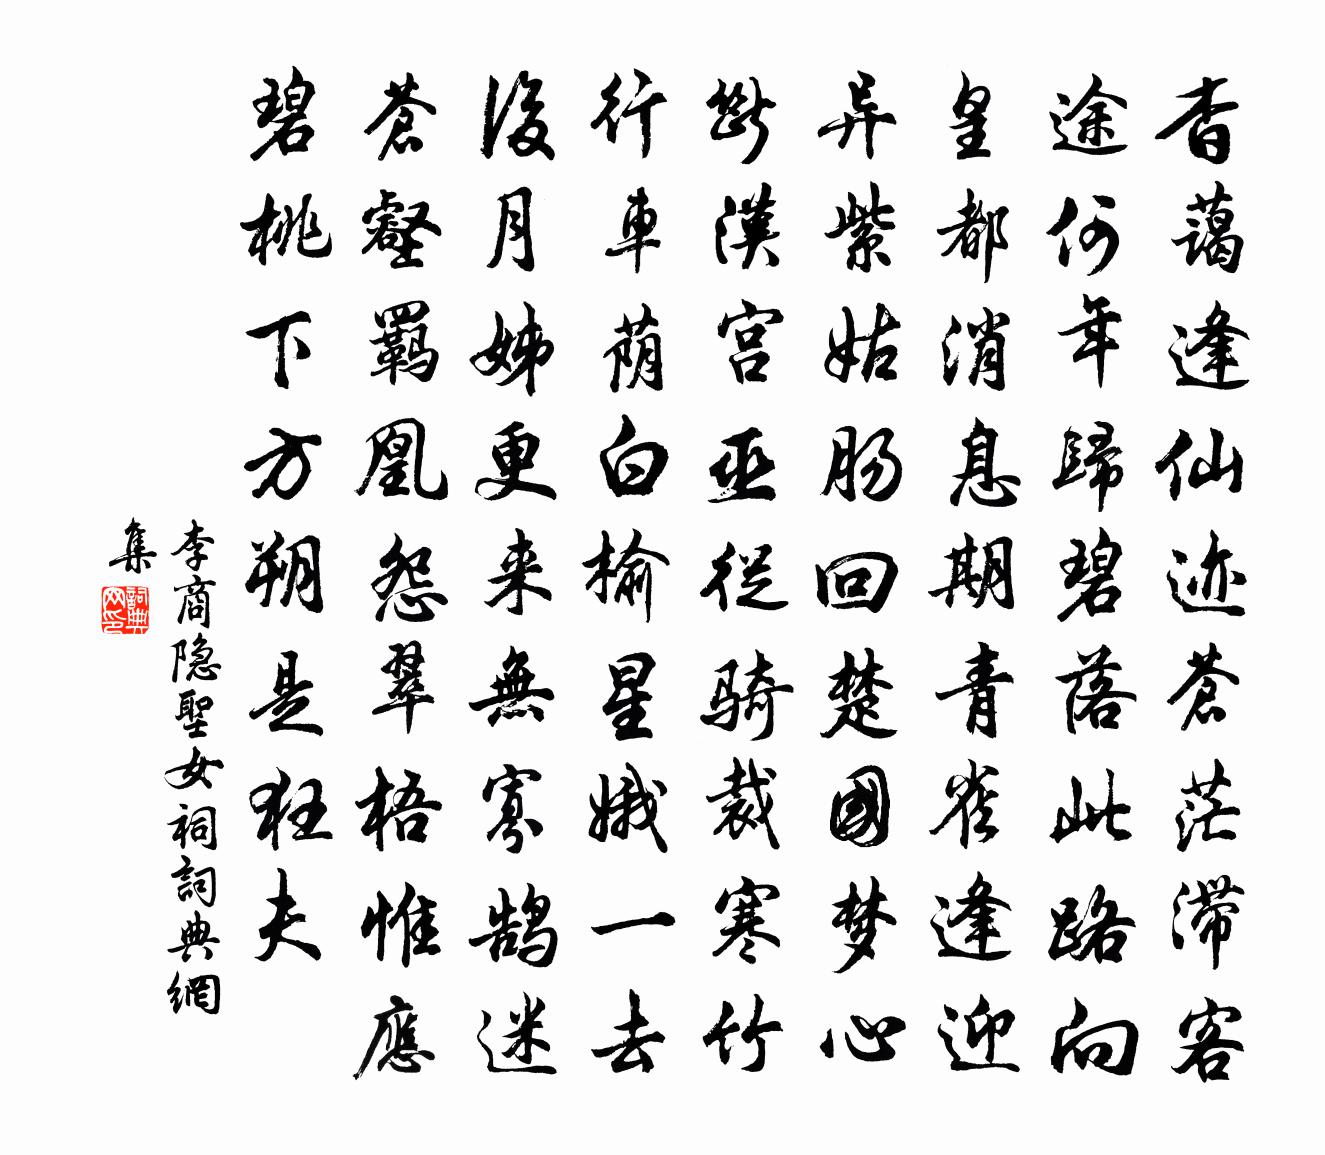 杳藹逢仙迹蒼茫滞客
途何年歸碧落此路向
皇都消息期青雀逢迎
异紫姑肠回楚國梦心
斷漢宫巫從骑裁寒竹
行車荫白榆星娥一去
後月姊更来無寡鹄迷
蒼壑羈凰怨翠梧惟應
碧桃下方朔是狂夫
李商隐聖女祠詞典網
集
詞典网印